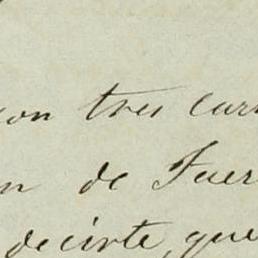 con tres carr
n de Fuer
decirte, que